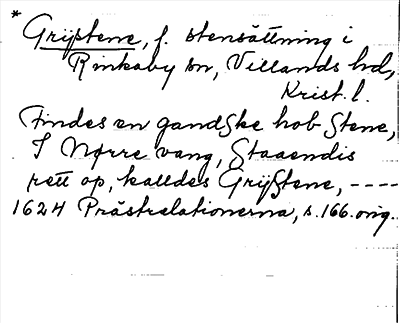 * Grijstene, f. stensättning i
Rinkaby sn, Villands hd,
Krist. l.
Findes en gandske hob Stene,
I Nørre vang, Staaendis
rett op, kalldes Grijstene, ----
1624 Prästrelationerna, s. 166. orig.